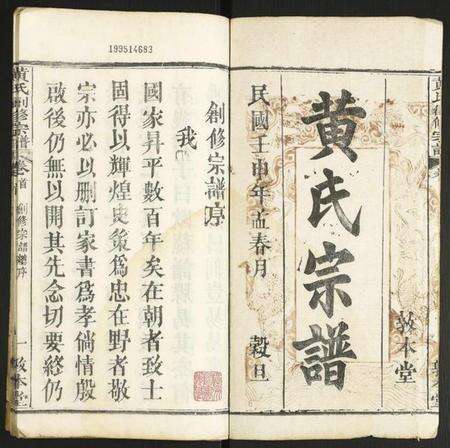 敦本堂
黄氏宗譜
民國壬申年孟春月 穀旦
199514683
創修宗譜序
我
國家昇平數百年矣在朝者致士
固得以輝煌史策爲忠在野者敬
宗亦必以刪訂家書爲孝倘情殷
啟後仍無以開其先念切要終仍
黃氏創修宗譜 卷首 創修宗譜序 一 敦本堂